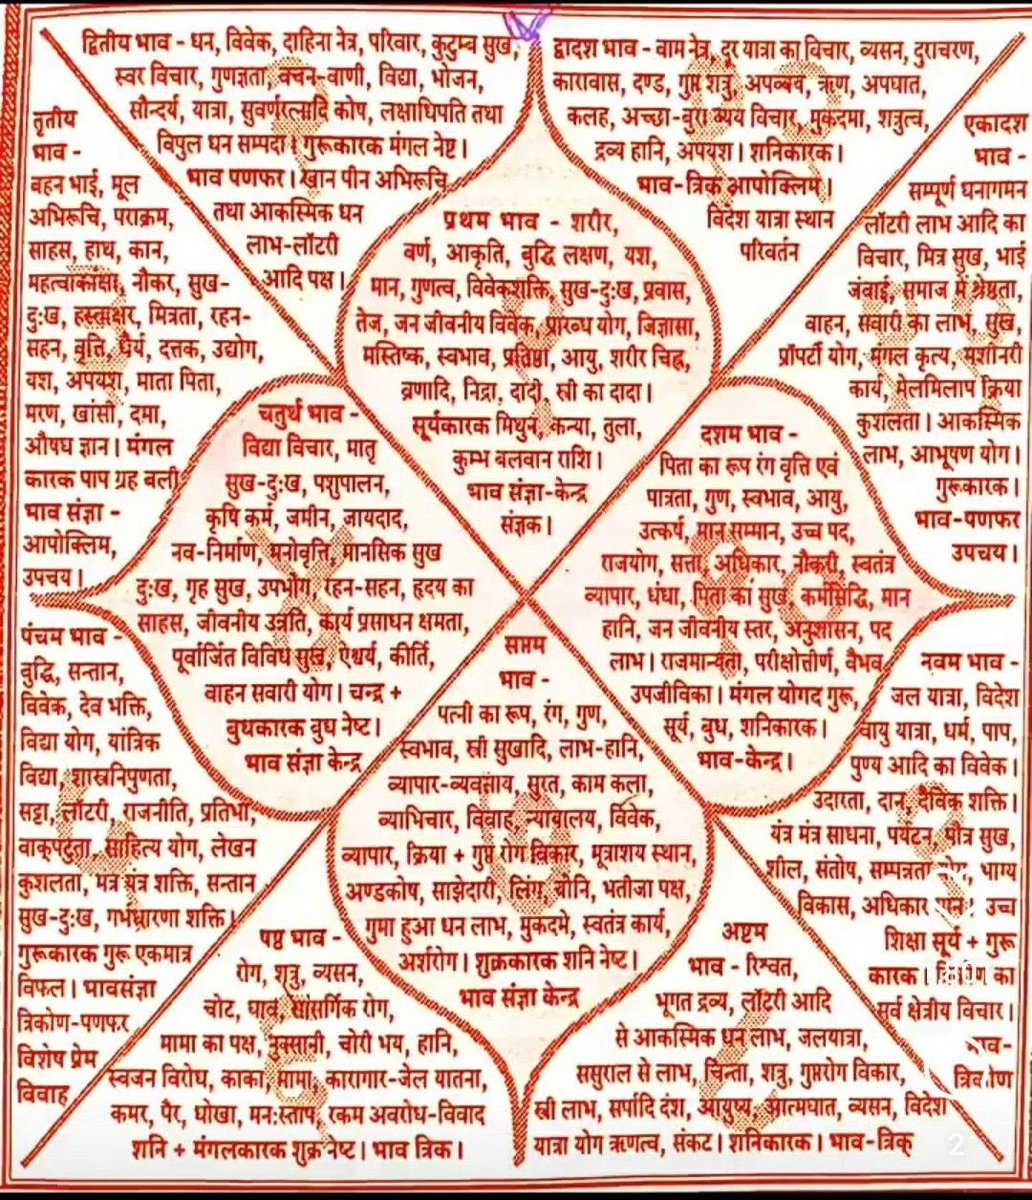 द्वितीय भाव - धन, विवेक, दाहिना नेत्र, परिवार, कुटुम्ब सुख,
स्वर विचार, गुणज्ञता, वचन-वाणी, विद्या, भोजन,
सौन्दर्य, यात्रा, सुवर्णरत्नादि कोष, लक्षाधिपति तथा
विपुल धन सम्पदा। गुरूकारक मंगल नेष्ट।
भाव पणफर। खान पीन अभिरूचि
तथा आकस्मिक धन
लाभ-लॉटरी
आदि पक्ष।
द्वादश भाव - वाम नेत्र, दूर यात्रा का विचार, व्यसन, दुराचरण,
कारावास, दण्ड, गुप्त शत्रु, अपव्यव, ऋण, अपघात,
कलह, अच्छा-बुरा व्यय विचार, मुकदमा, शत्रुत्व,
द्रव्य हानि, अपयश। शनिकारक।
भाव-त्रिक आपोक्लिम।
विदेश यात्रा स्थान
परिवर्तन
तृतीय
भाव -
बहन भाई, मूल
अभिरूचि, पराक्रम,
साहस, हाथ, कान,
महत्वाकांक्षा, नौकर, सुख-
दुःख, हस्ताक्षर, मित्रता, रहन-
सहन, वृत्ति, धैर्य, दत्तक, उद्योग,
यश, अपयश, माता पिता,
मरण, खांसी, दमा,
औषध ज्ञान। मंगल
कारक पाप ग्रह बली
भाव संज्ञा -
आपोक्लिम,
उपचय।
प्रथम भाव - शरीर,
वर्ण, आकृति, बुद्धि लक्षण, यश,
मान, गुणत्व, विवेकशक्ति, सुख-दुःख, प्रवास,
तेज, जन जीवनीय विवेक, प्रारब्ध योग, जिज्ञासा,
मस्तिष्क, स्वभाव, प्रतिष्ठा, आयु, शरीर चिह्न,
व्रणादि, निद्रा, दादी, स्त्री का दादा।
सूर्यकारक मिथुन, कन्या, तुला,
कुम्भ बलवान राशि।
भाव संज्ञा-केन्द्र
संज्ञक।
एकादश
भाव -
सम्पूर्ण धनागमन
लॉटरी लाभ आदि का
विचार, मित्र सुख, भाई
जंवाई, समाज में श्रेष्ठता,
वाहन, सवारी का लाभ, सुख,
प्रॉपर्टी योग, मंगल कृत्य, मशीनरी
कार्य, मेलमिलाप क्रिया
कुशलता। आकस्मिक
लाभ, आभूषण योग।
गुरूकारक।
भाव-पणफर
उपचय।
चतुर्थ भाव -
विद्या विचार, मातृ
सुख-दुःख, पशुपालन,
कृषि कर्म, जमीन, जायदाद,
नव-निर्माण, मनोवृत्ति, मानसिक सुख
दुःख, गृह सुख, उपभोग, रहन-सहन, हृदय का
साहस, जीवनीय उन्नति, कार्य प्रसाधन क्षमता,
पूर्वार्जित विविध सुख, ऐश्वर्य, कीर्ति,
वाहन सवारी योग। चन्द्र +
बुधकारक बुध नेष्ट।
भाव संज्ञा केन्द्र
दशम भाव -
पिता का रूप रंग वृत्ति एवं
पात्रता, गुण, स्वभाव, आयु,
उत्कर्ष, मान सम्मान, उच्च पद,
राजयोग, सत्ता, अधिकार, नौकरी, स्वतंत्र
व्यापार, धंधा, पिता का सुख, कर्मसिद्धि, मान
हानि, जन जीवनीय स्तर, अनुशासन, पद
लाभ। राजमान्यता, परीक्षोत्तीर्ण, वैभव,
उपजीविका। मंगल योगद गुरू,
सूर्य, बुध, शनिकारक।
भाव-केन्द्र।
पंचम भाव -
बुद्धि, सन्तान,
विवेक, देव भक्ति,
विद्या योग, यांत्रिक
विद्या, शास्त्रनिपुणता,
सट्टा, लॉटरी, राजनीति, प्रतिभा,
वाक्पटुता, साहित्य योग, लेखन
कुशलता, मंत्र यंत्र शक्ति, सन्तान
सुख-दुःख, गर्भधारणा शक्ति।
गुरूकारक गुरू एकमात्र
विफल। भावसंज्ञा
त्रिकोण-पणफर
विशेष प्रेम
विवाह
सप्तम
भाव -
पत्नी का रूप, रंग, गुण,
स्वभाव, स्त्री सुखादि, लाभ-हानि,
व्यापार-व्यवसाय, सुरत, काम कला,
व्याभिचार, विवाह, न्यायालय, विवेक,
व्यापार, क्रिया + गुप्त रोग विकार, मूत्राशय स्थान,
अण्डकोष, साझेदारी, लिंग, योनि, भतीजा पक्ष,
गुमा हुआ धन लाभ, मुकदमे, स्वतंत्र कार्य,
अर्शरोग। शुक्रकारक शनि नेष्ट।
भाव संज्ञा केन्द्र
नवम भाव -
जल यात्रा, विदेश
वायु यात्रा, धर्म, पाप,
पुण्य आदि का विवेक।
उदारता, दान, दैविक शक्ति।
यंत्र मंत्र साधना, पर्यटन, पौत्र सुख,
शील, संतोष, सम्पन्नता भाग्य
विकास, अधिकार उच्च
शिक्षा सूर्य + गुरू
कारक। त्रिकोण का
सर्व क्षेत्रीय विचार।
भाव-
त्रिकोण
षष्ठ भाव -
रोग, शत्रु, व्यसन,
चोट, घाव, सांसर्गिक रोग,
मामा का पक्ष, नुक्सानी, चोरी भय, हानि,
स्वजन विरोध, काका, मामा, कारागार-जेल यातना,
कमर, पैर, धोखा, मनःस्ताप, रकम अवरोध-विवाद
शनि + मंगलकारक शुक्र नेष्ट। भाव त्रिक।
अष्टम
भाव - रिश्वत,
भूगत द्रव्य, लॉटरी आदि
से आकस्मिक धन लाभ, जलयात्रा,
ससुराल से लाभ, चिंन्ता, शत्रु, गुप्तरोग विकार,
स्त्री लाभ, सर्पादि दंश, आयुष्य, आत्मघात, व्यसन, विदेश
यात्रा योग ऋणत्व, संकट। शनिकारक। भाव-त्रिक्
2